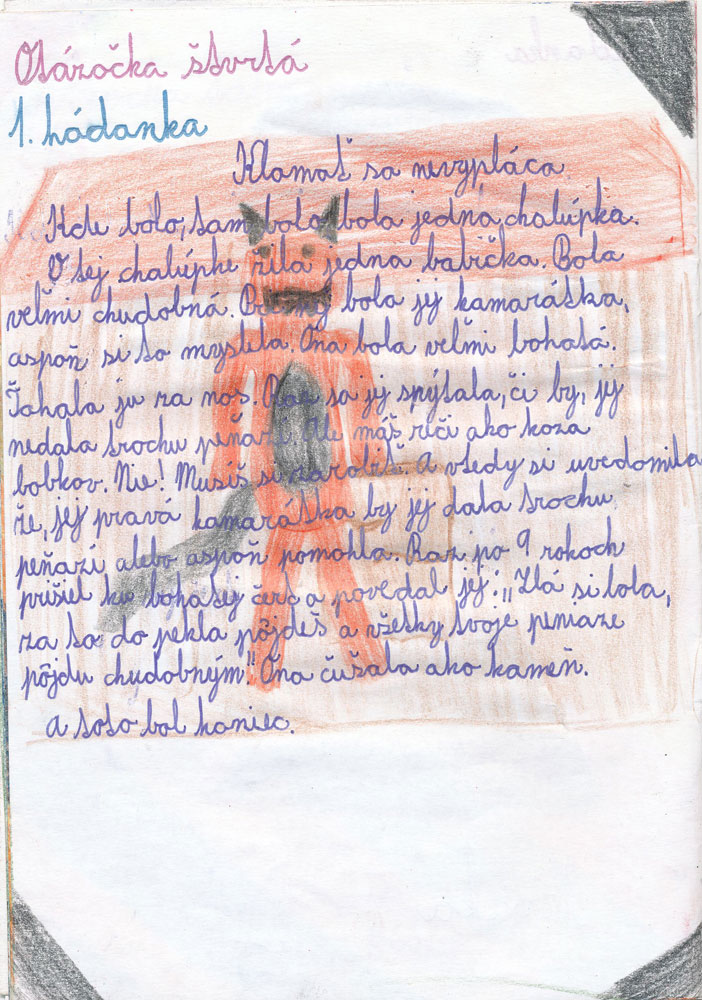 Otázočka štvrtá
1. hádanka
Klamať sa nevypláca
Kde bolo, tam bolo bola jedna chalúpka.
V tej chalúpke žila jedna babička. Bola
veľmi chudobná. bola jej kamarátka,
aspoň si to myslela. Ona bola veľmi bohatá.
Ťahala ju za nos. Raz sa jej spýtala, či by, jej
nedala trochu peňazí. Ale máš rečí ako koza
bobkov. Nie! Musíš si zarobiť. A vtedy si uvedomila
že, jej pravá kamarátka by jej dala trochu
peňazí alebo aspoň pomohla. Raz po 9 rokoch
prišiel ku bohatej čert a povedal jej: „Zlá si bola,
za to do pekla pôjdeš a všetky tvoje peniaze
pôjdu chudobným." Ona čušala ako kameň.
A toto bol koniec.